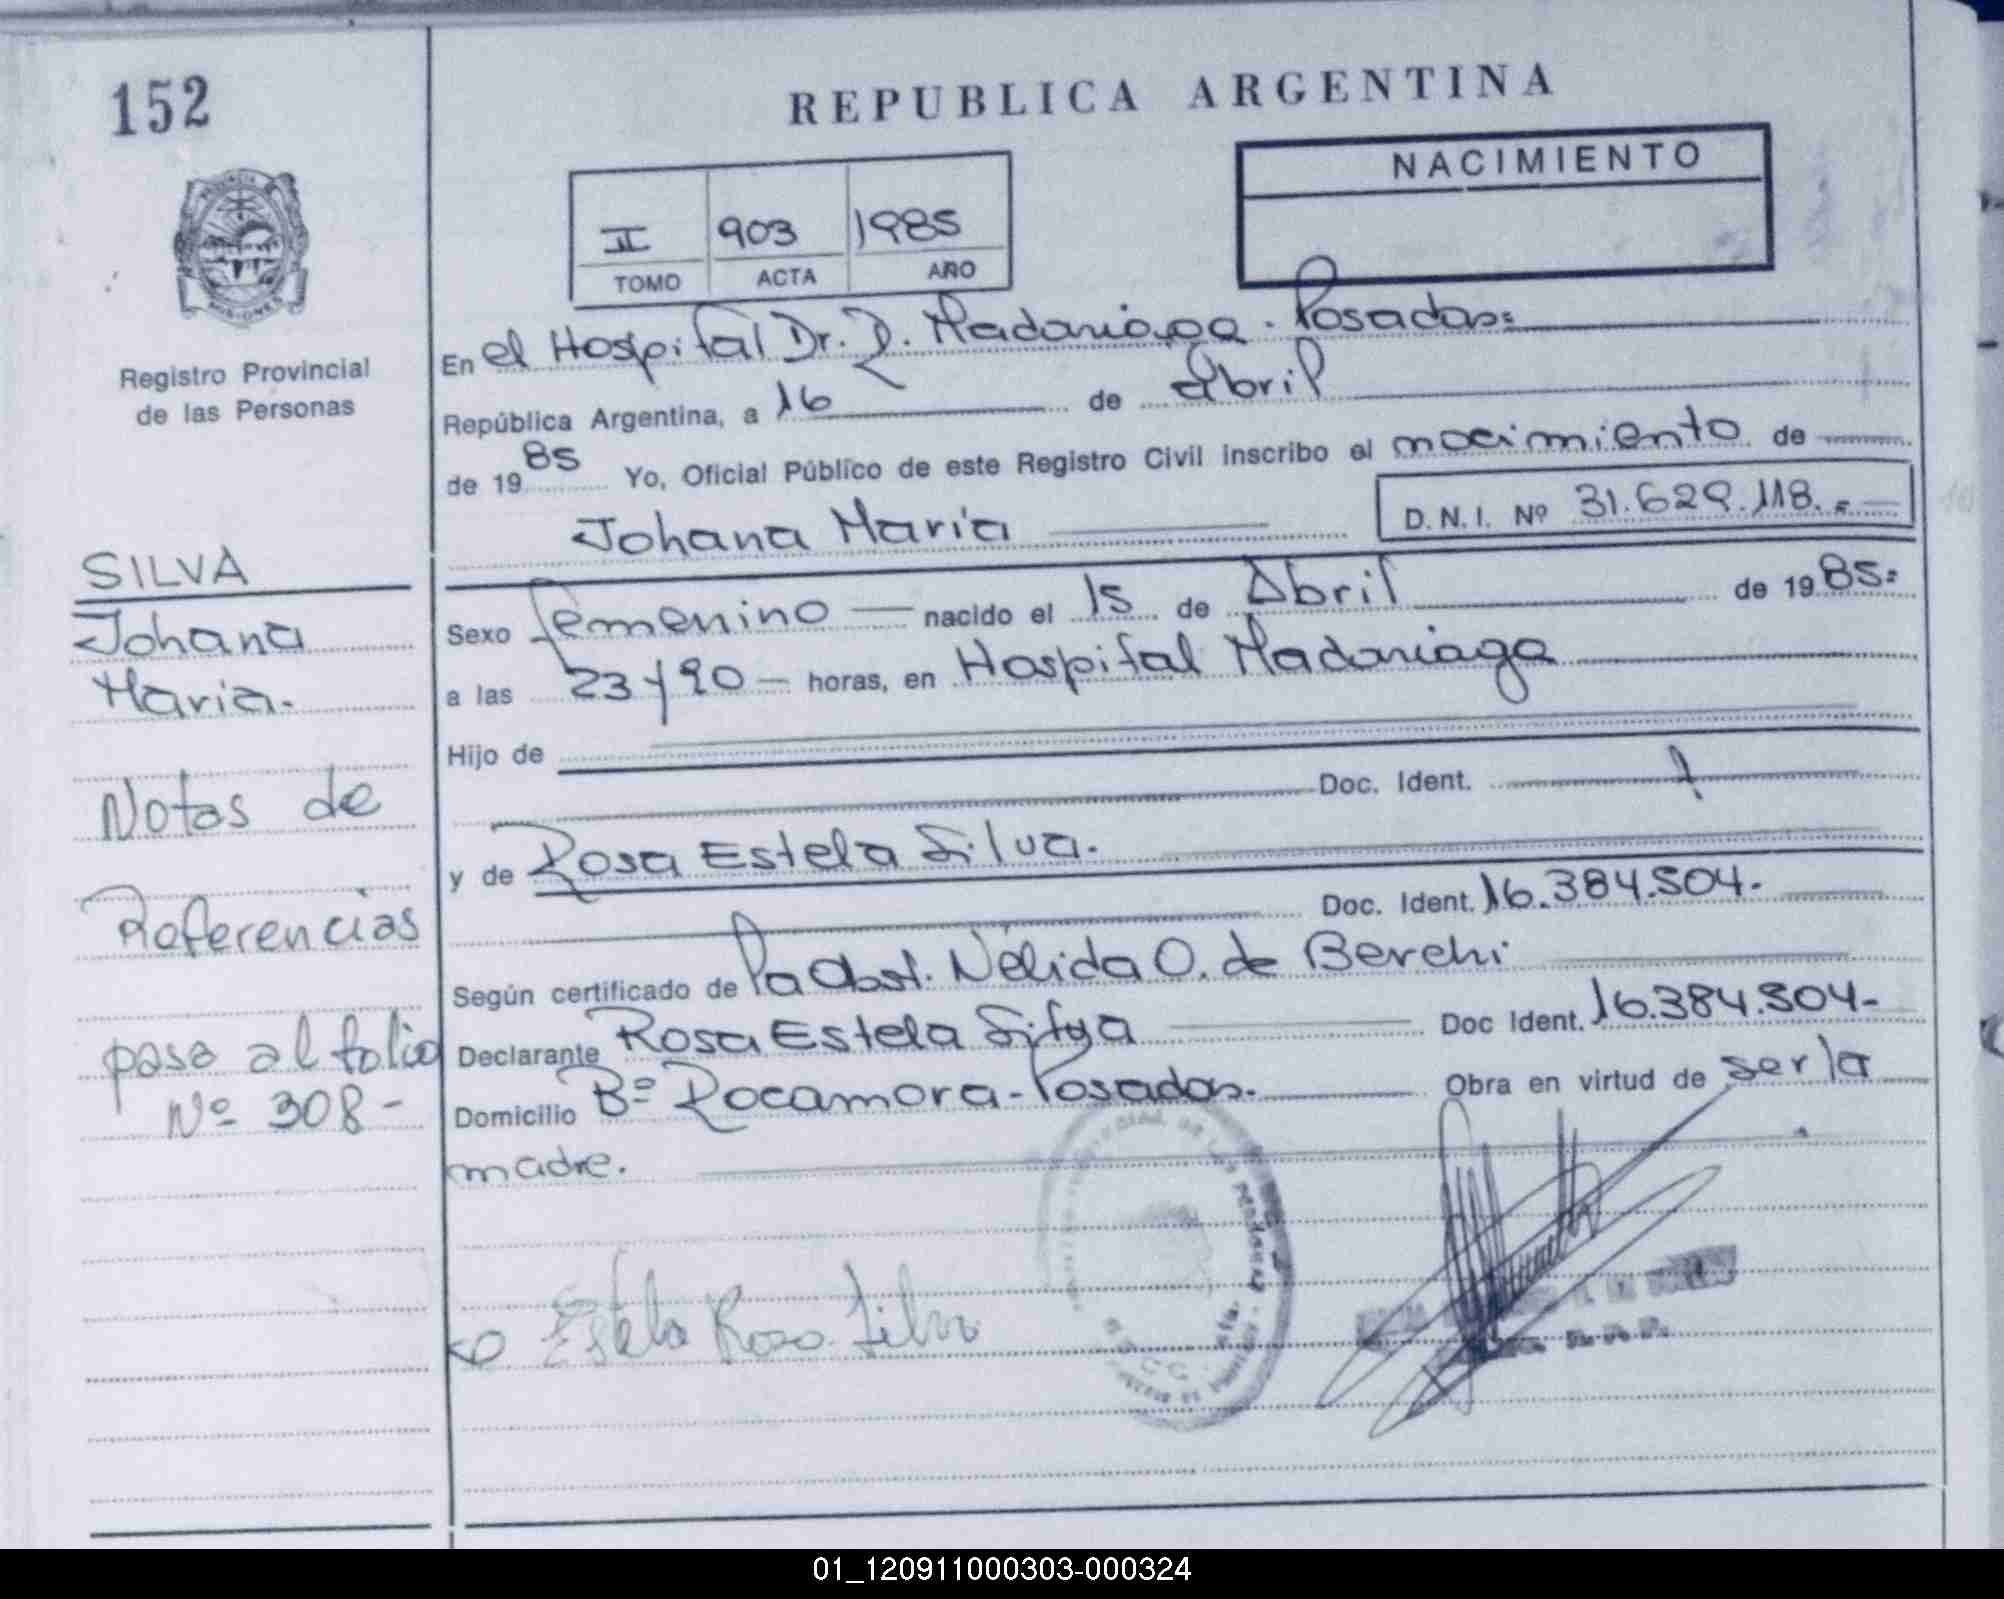 152
REPUBLICA ARGENTINA
NACIMIENTO
II 903 1985
TOMO ACTA AÑO
Registro Provincial
de las Personas
En el Hospital Dr. R. Madariaga - Posadas=
República Argentina, a 16 de Abril
de 1985 Yo, Oficial Público de este Registro Civil inscribo el nacimiento de
Johana Maria D.N.I. Nº 31.629.118.-
SILVA
Johana
Maria.
Sexo femenino nacido el 15 de Abril de 1985=
a las 23 y 20 horas, en Hospital Madariaga
Hijo de
Doc. Ident.
y de Rosa Estela Silva.
Doc. Ident. 16.384.504.-
Según certificado de la Obst. Nélida O. de Berchi
Declarante Rosa Estela Silva Doc Ident. 16.384.504-
Domicilio Bº Rocamora - Posadas. Obra en virtud de ser la
madre.
Notas de
Referencias
pasa al folio
Nº 308-
Estela Rosa Silva
01_120911000303-000324